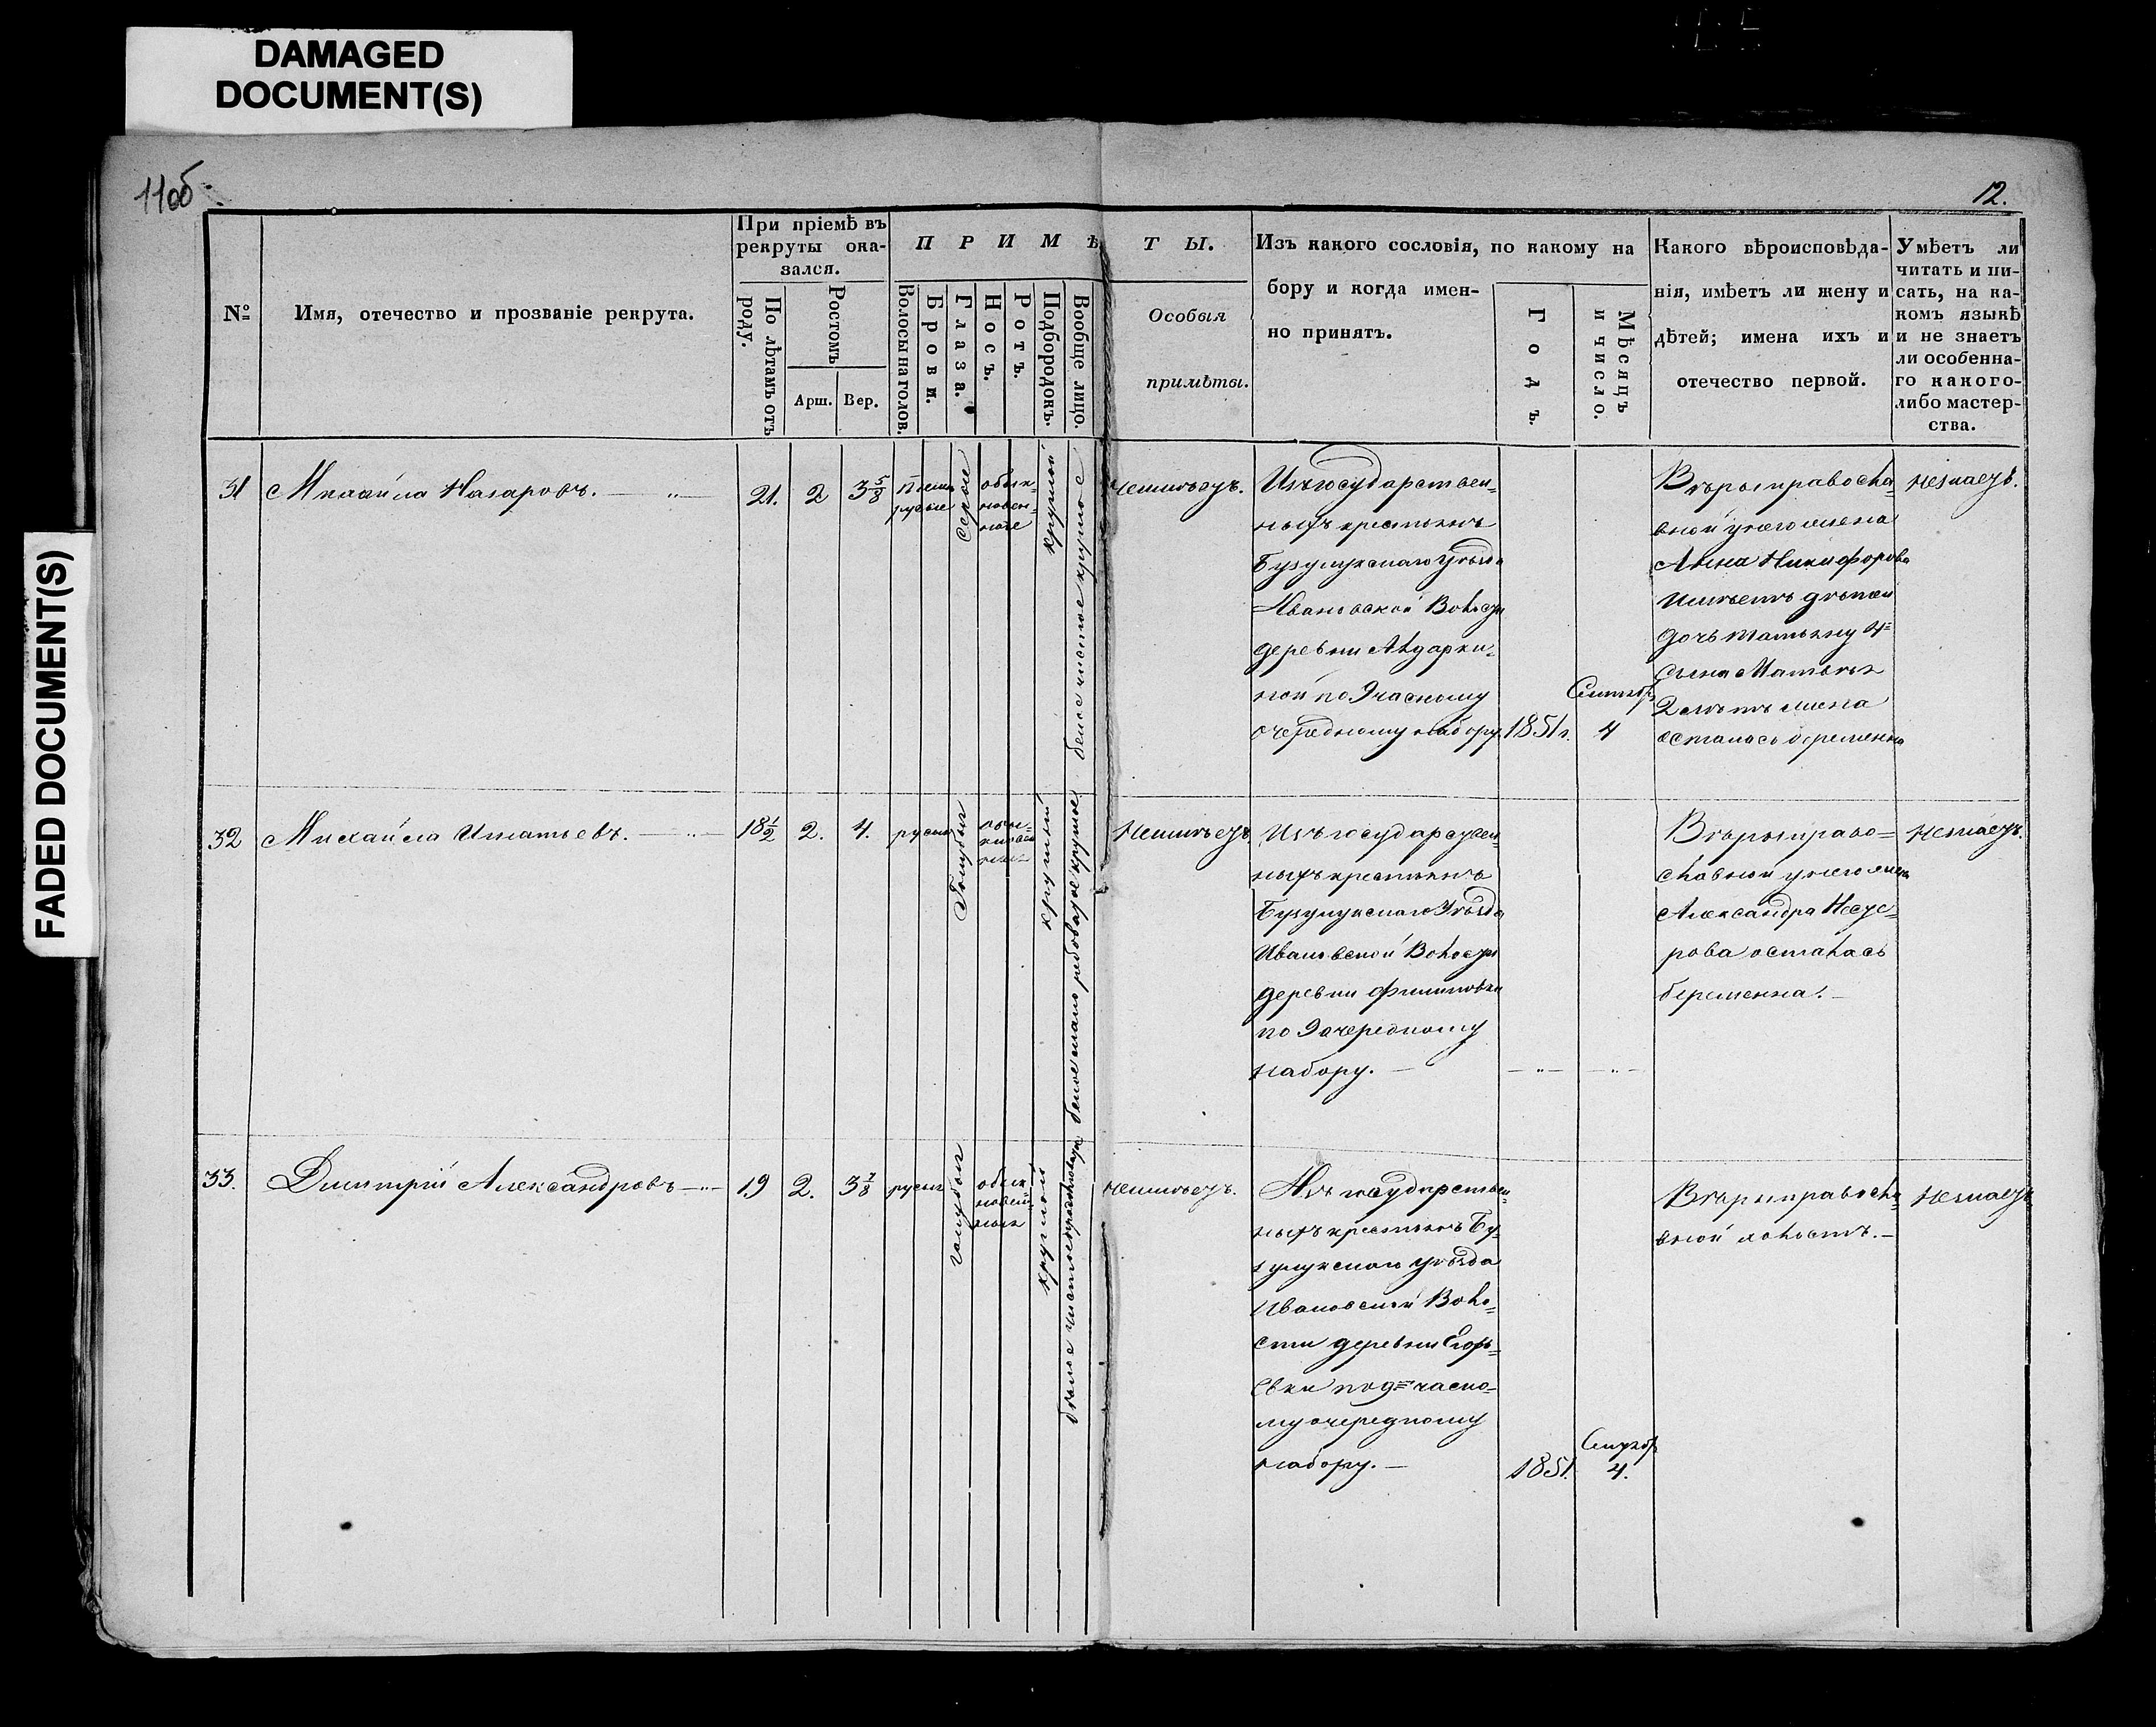 DAMAGED
DOCUMENT(S)
FADED DOCUMENT(S)
11об.
12.
№
Имя, отечество и прозваніе рекрута.
При пріемѣ въ
рекруты ока-
зался.
По лѣтамъ отъ
роду.
Ростомъ
Арш.
Вер.
ПРИМѢТЫ.
Волосы на голов.
Брови.
Глаза.
Носъ.
Ротъ.
Подбородокъ.
Вообще лицо.
Особыя
примѣты.
Изъ какого сословія, по какому на
бору и когда имен-
но принятъ.
Годъ.
Мѣсяцъ
и число.
Какого вѣроисповѣда-
нія, имѣетъ ли жену и
дѣтей; имена ихъ и
отечество первой.
Умѣетъ ли
читать и пи-
сать, на ка-
комъ языкѣ
и не знаетъ
ли особенна-
го какого-
либо мастер-
ства.
31
Михайла Назаровъ.
21.
2
3 5/8
русые
серые
обык-
новен-
ные
круглой
белое чистое круглое
неимѣетъ.
Изъ государствен-
ныхъ крестьянъ
Бузулукскаго уѣзда
Ивановской Волости
деревни
ной по 9 часному
очередному набору
1851 г.
Сентябр
4
Вѣры правосла-
вной у него жена
Анна Никифорова
имѣетъ детей
дочь Татьяну 4=
сына Матвея
2 летъ жена
осталась беременна
незнаетъ.
32
Михайла Игнатьевъ.
18 1/2
2.
4.
русые
Голубые
обы-
кновен-
ные
круглый
белое мало рябоватое круглое
Неимѣетъ
Изъ государствен-
ныхъ крестьянъ
Бузулукскаго Уѣзда
Ивановской Волости
деревни Филиповки
по 9 очередному
набору.
Вѣры право=
славной у него жена
Александра Несте-
рова осталась
беременна.
Незнаетъ.
33.
Дмитрій Александровъ
19
2.
3 7/8
русые
голубые
обык
новен-
ные
круглой
белое чистое продолговатое
неимѣетъ.
Изъ государствен-
ныхъ крестьянъ Бу-
зулукскаго уѣзда
Ивановской Воло-
сти деревни Егорь-
евки по 9= часно-
му очередному
набору.
1851.
Сентябр
4.
Вѣры правосла-
вной холостъ.
Незнаетъ